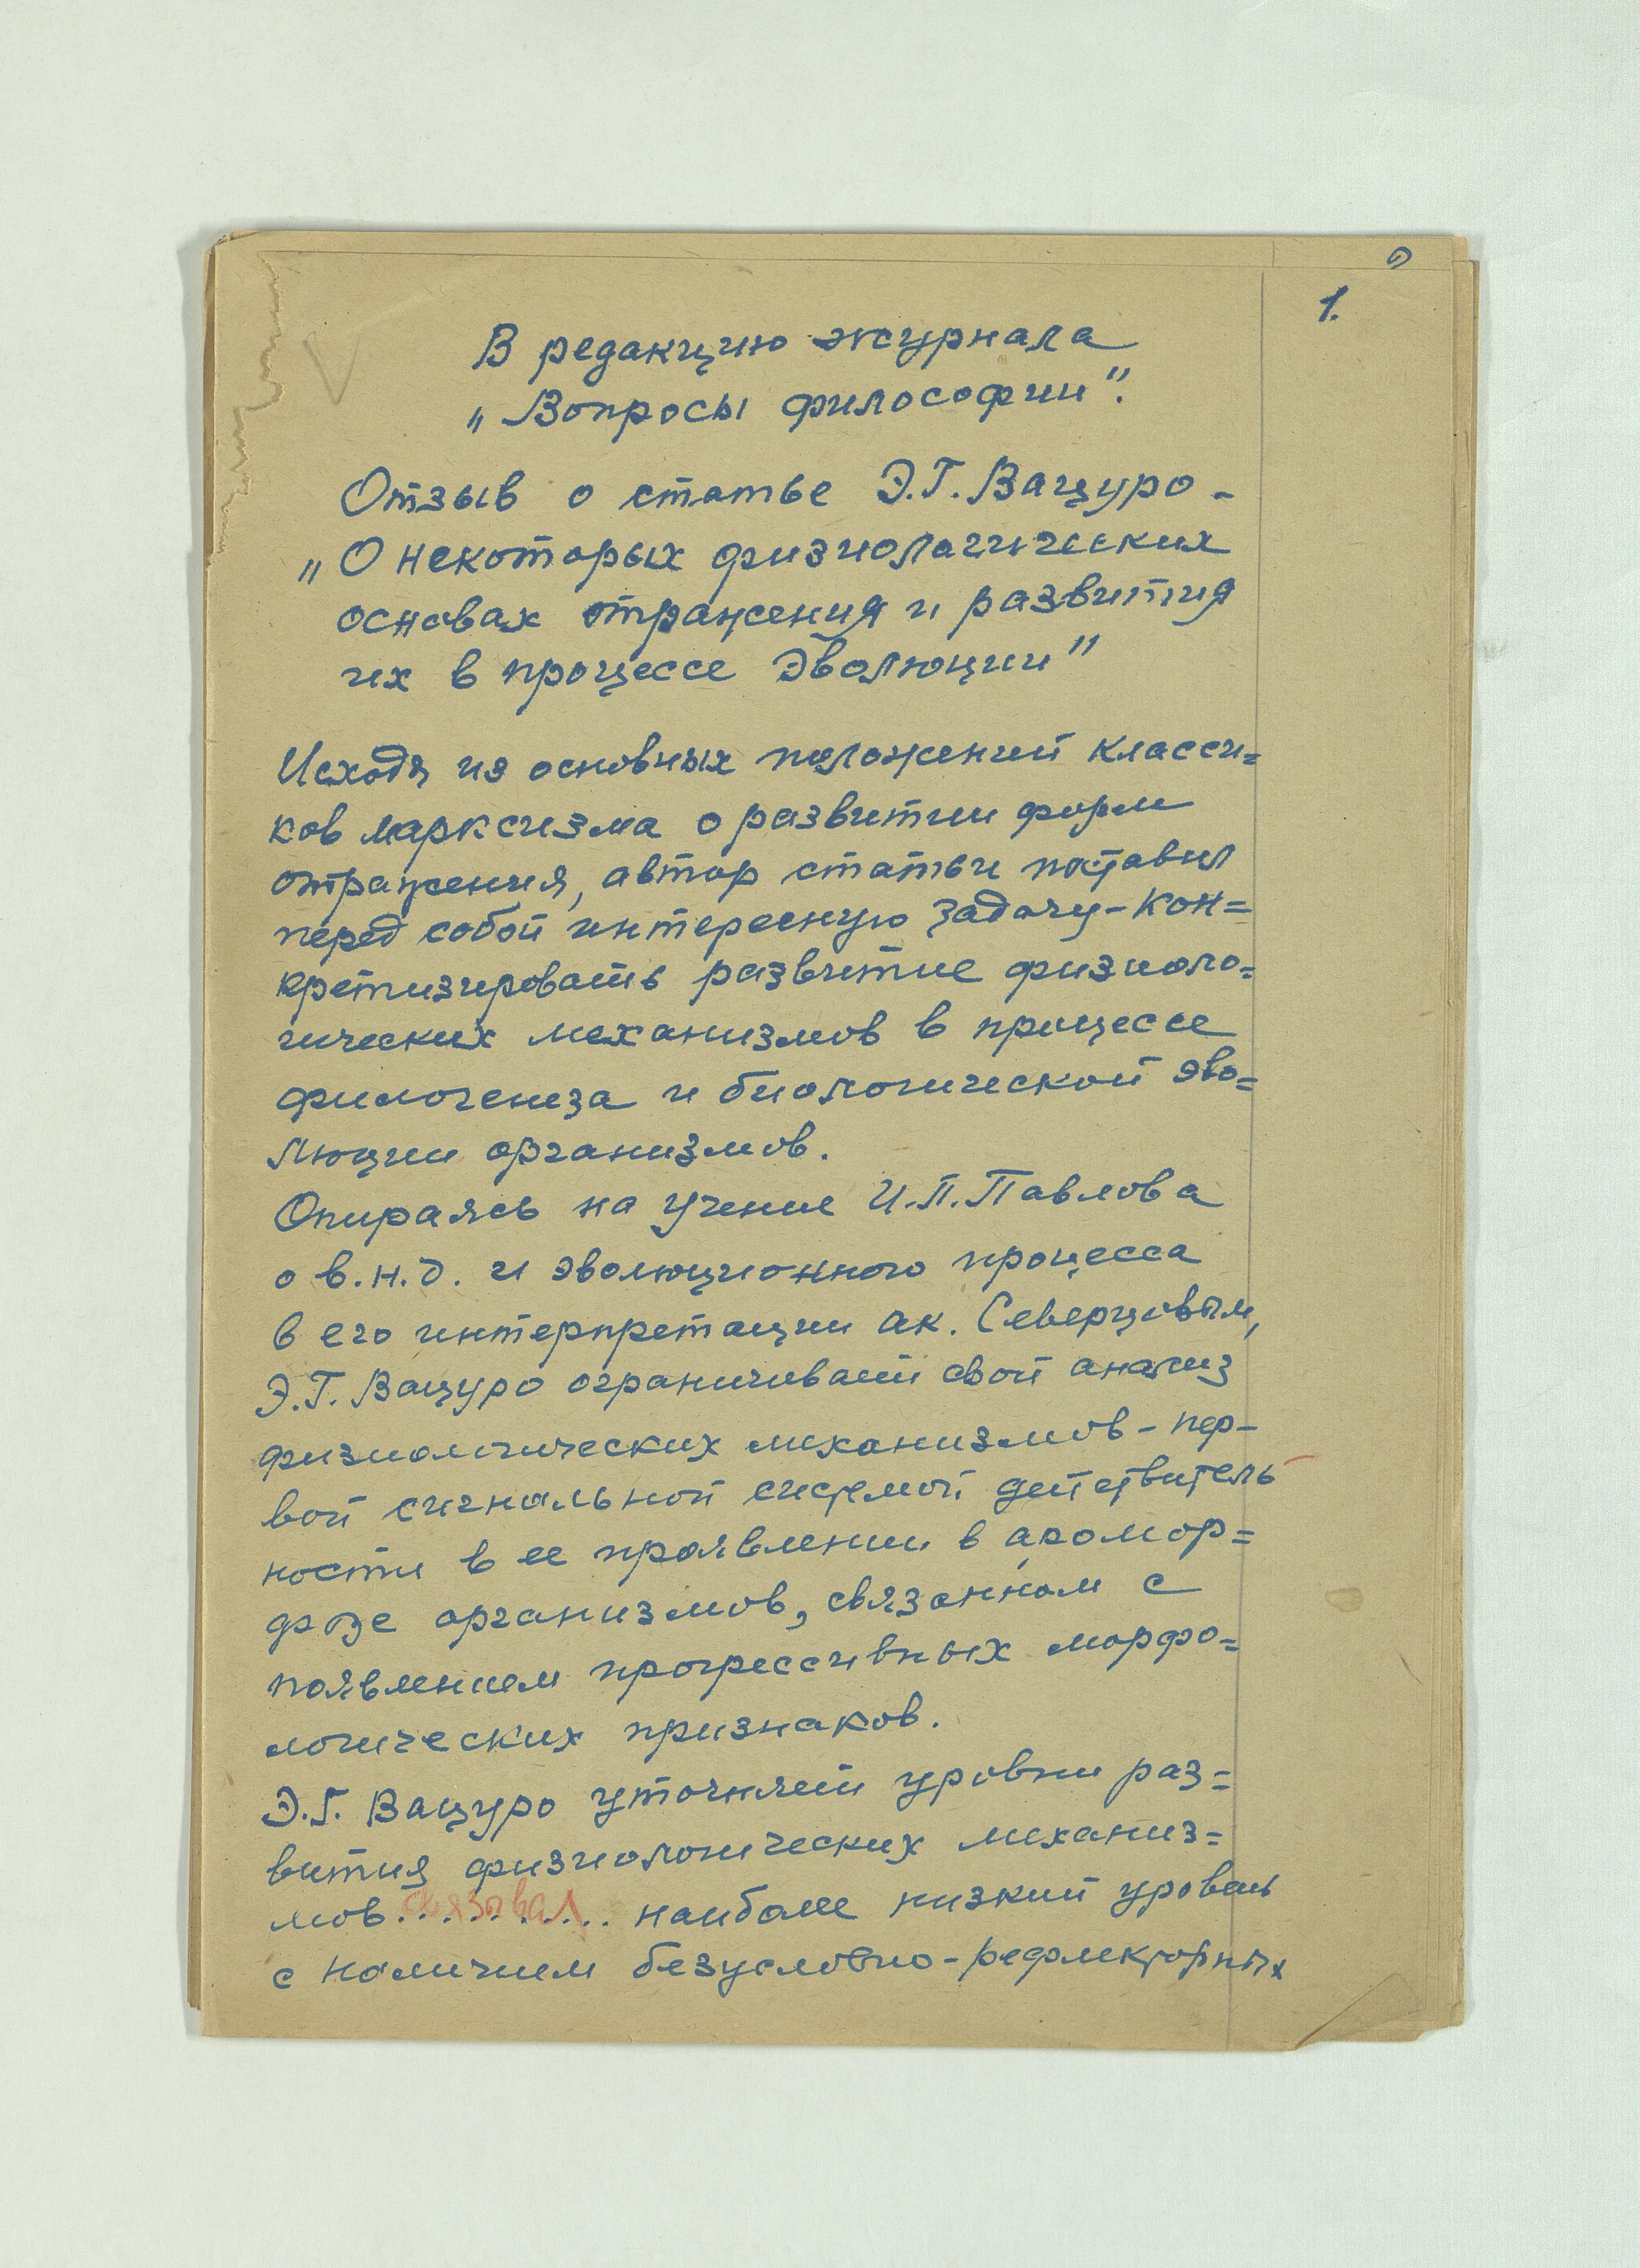 1.
В редакцию журнала
„Вопросы философии".
Отзыв о статье Э.Г. Вацуро -
„О некоторых физиологических
основах отражения и развития
их в процессе эволюции"
Исходя из основных положений класси=
ков марксизма о развитии форм
отражения, автор статьи поставил
перед собой интересную задачу - кон=
кретизировать развитие физиоло=
гических механизмов в процессе
филогенеза и биологической эво=
люции организмов.
Опираясь на учение И.П. Павлова
о в.н.д. и эволюционного процесса
в его интерпретации ак. Северцовым,
Э.Г. Вацуро ограничивает свой анализ
физиологических механизмов - пер-
вой сигнальной системой действитель-
ности в ее проявлении в аромор=
фозе организмов, связанном с
появлением прогрессивных морфо=
логических признаков.
Э.Г. Вацуро уточняет уровни раз=
вития физиологических механиз=
мов.... связывал .... наиболее низкий уровень
с наличием безусловно-рефлекторных